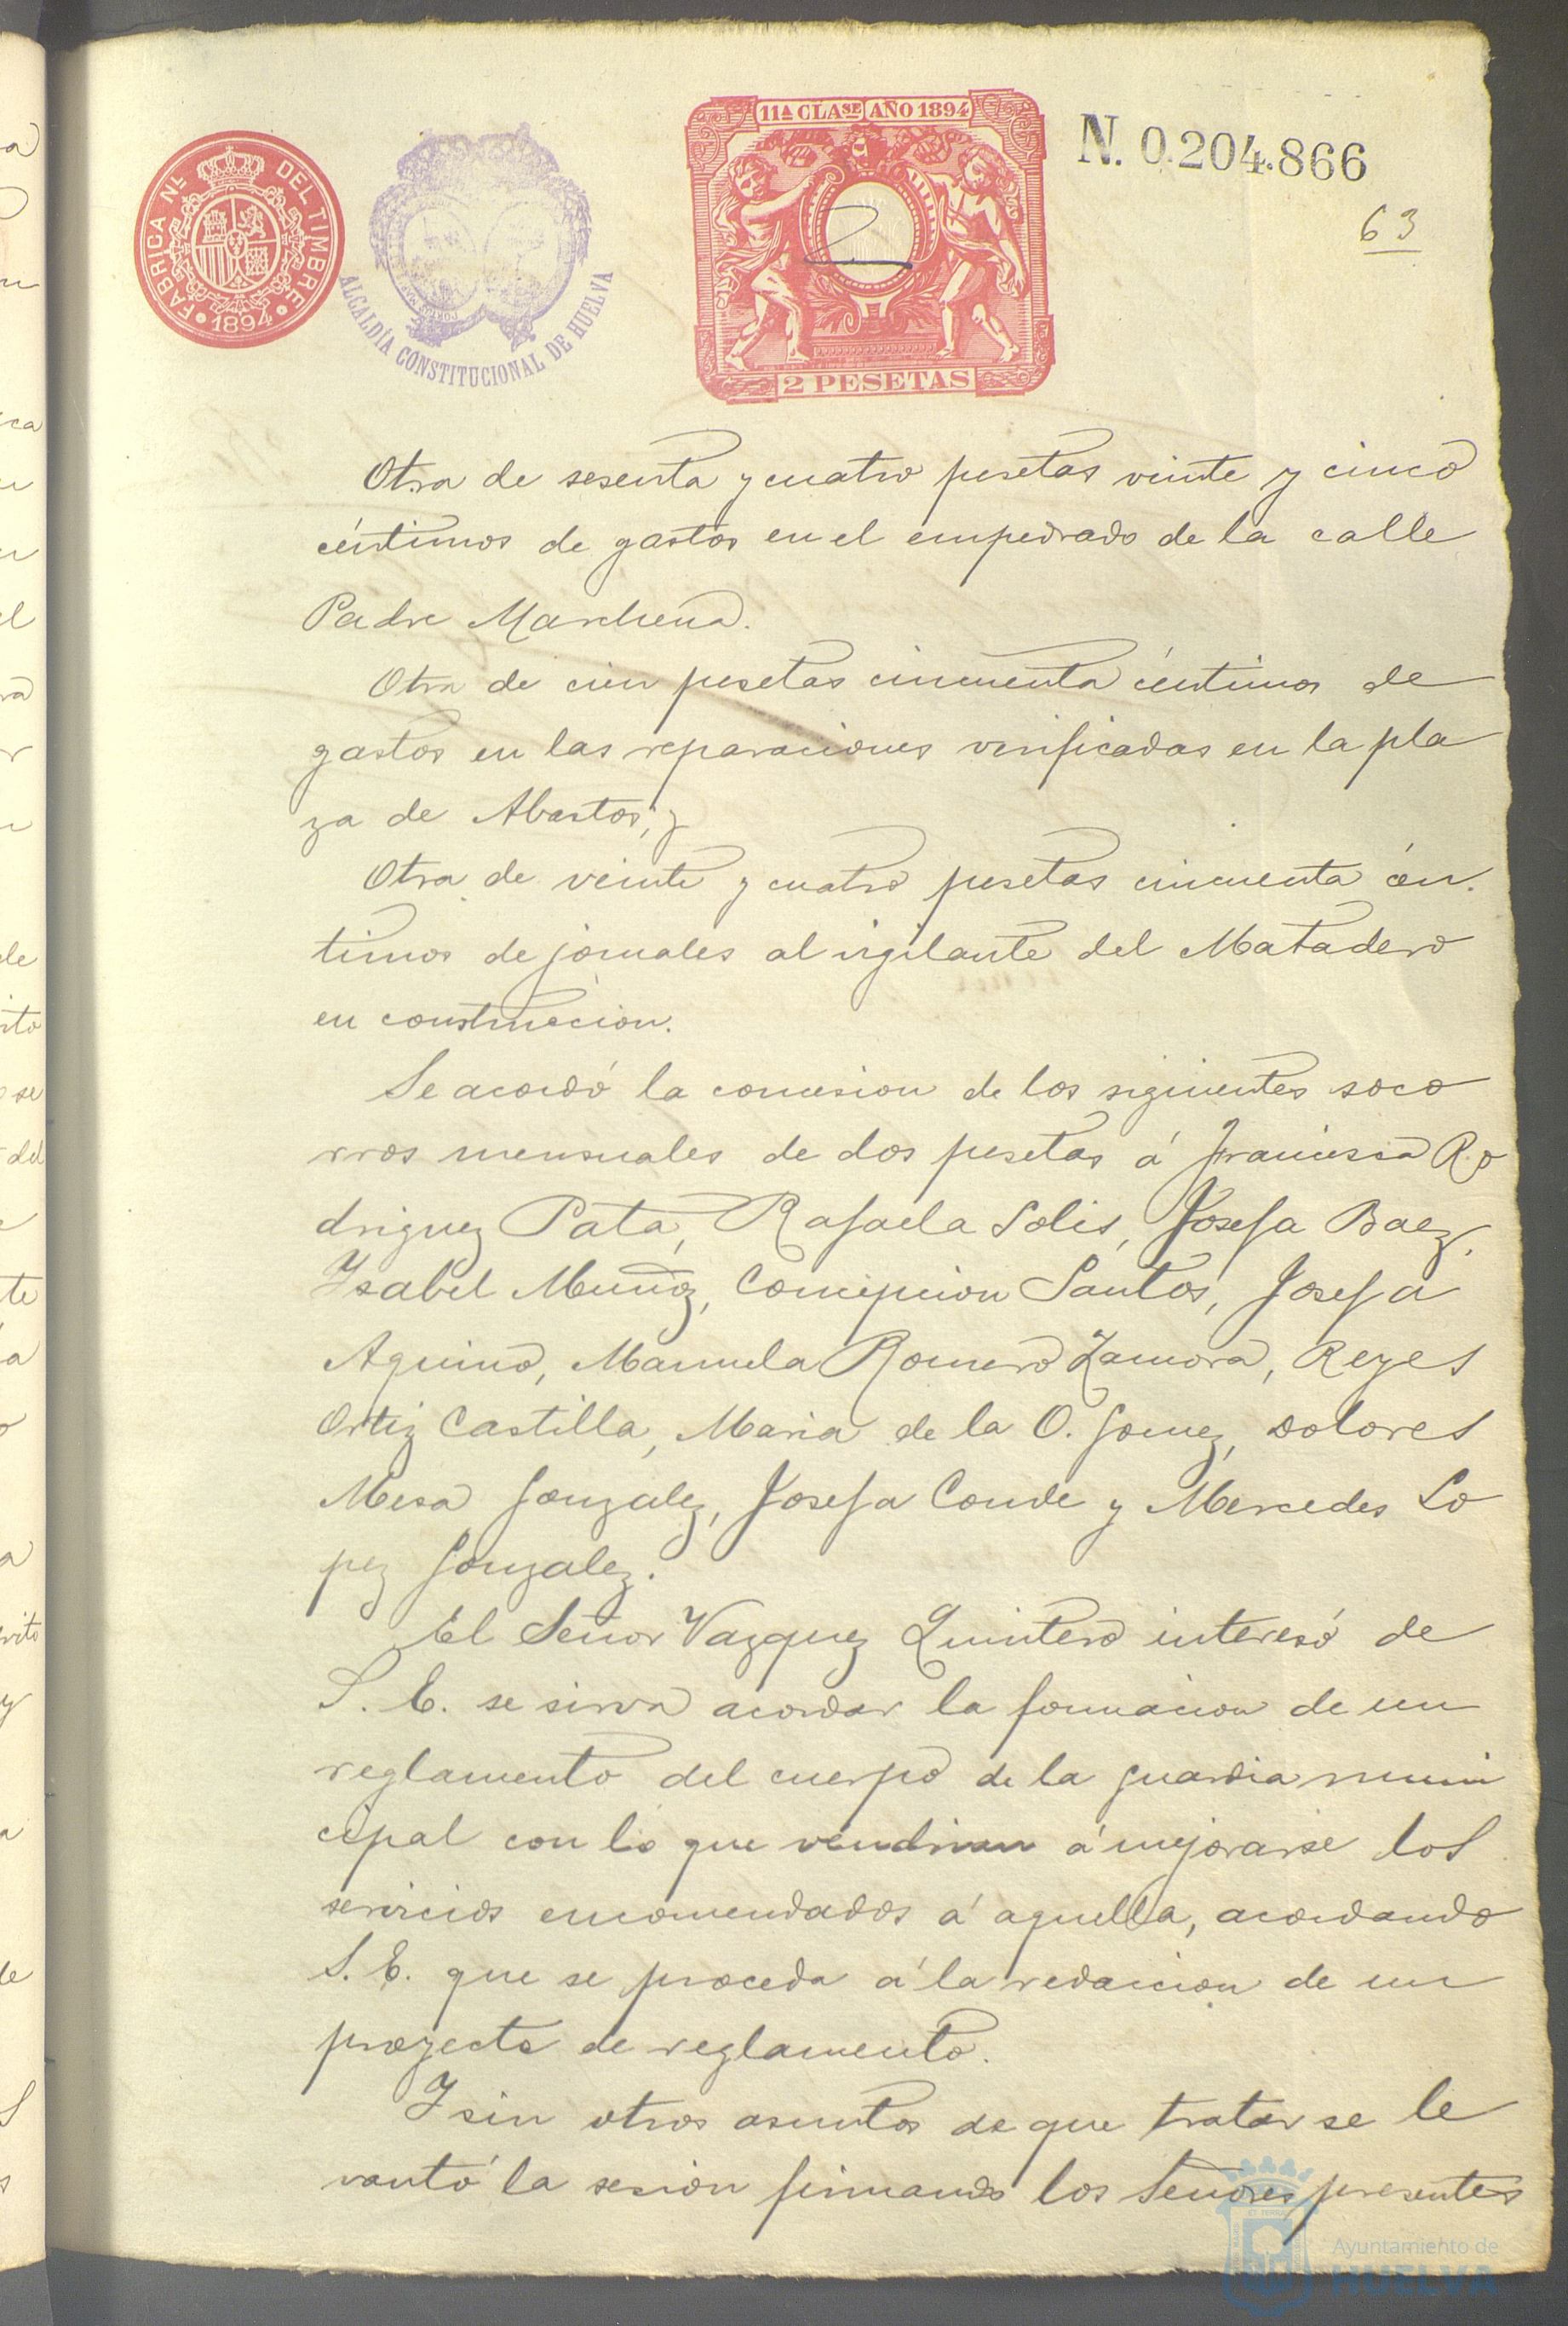 FABRICA NL DEL TIMBRE
1894
ALCALDÍA CONSTITUCIONAL DE HUELVA
11A CLASE AÑO 1894
2 PESETAS
N. 0.204.866
63
Otra de sesenta y cuatro pesetas veinte y cinco
céntimos de gastos en el empedrado de la calle
Padre Marchena.
Otra de cien pesetas cincuenta céntimos de
gastos en las reparaciones verificadas en la pla
za de Abastos, y
Otra de veinte y cuatro pesetas cincuenta cén.
timos de jornales al vigilante del Matadero
en construccion.
Se acordó la concesion de los siguientes soco
rros mensuales de dos pesetas á Francisca Ro
driguez Pata, Rafaela Solis, Josefa Baez,
Isabel Muñoz, Concepcion Santos, Josefa
Aquino, Manuela Romero Zamora, Reyes
Ortiz Castilla, Maria de la O. Gomez, Dolores
Mesa Gonzalez, Josefa Conde y Mercedes Lo
pez Gonzalez.
El Señor Vazquez Quintero interesó de
S. E. se sirva acordar la formacion de un
reglamento del cuerpo de la guardia muni
cipal con lo que vendrian á mejorarse los
servicios encomendados á aquella, acordando
S. E. que se proceda á la redaccion de un
proyecto de reglamento.
Y sin otros asuntos de que tratar se le
vantó la sesion firmando los Señores presentes
Ayuntamiento de
HUELVA